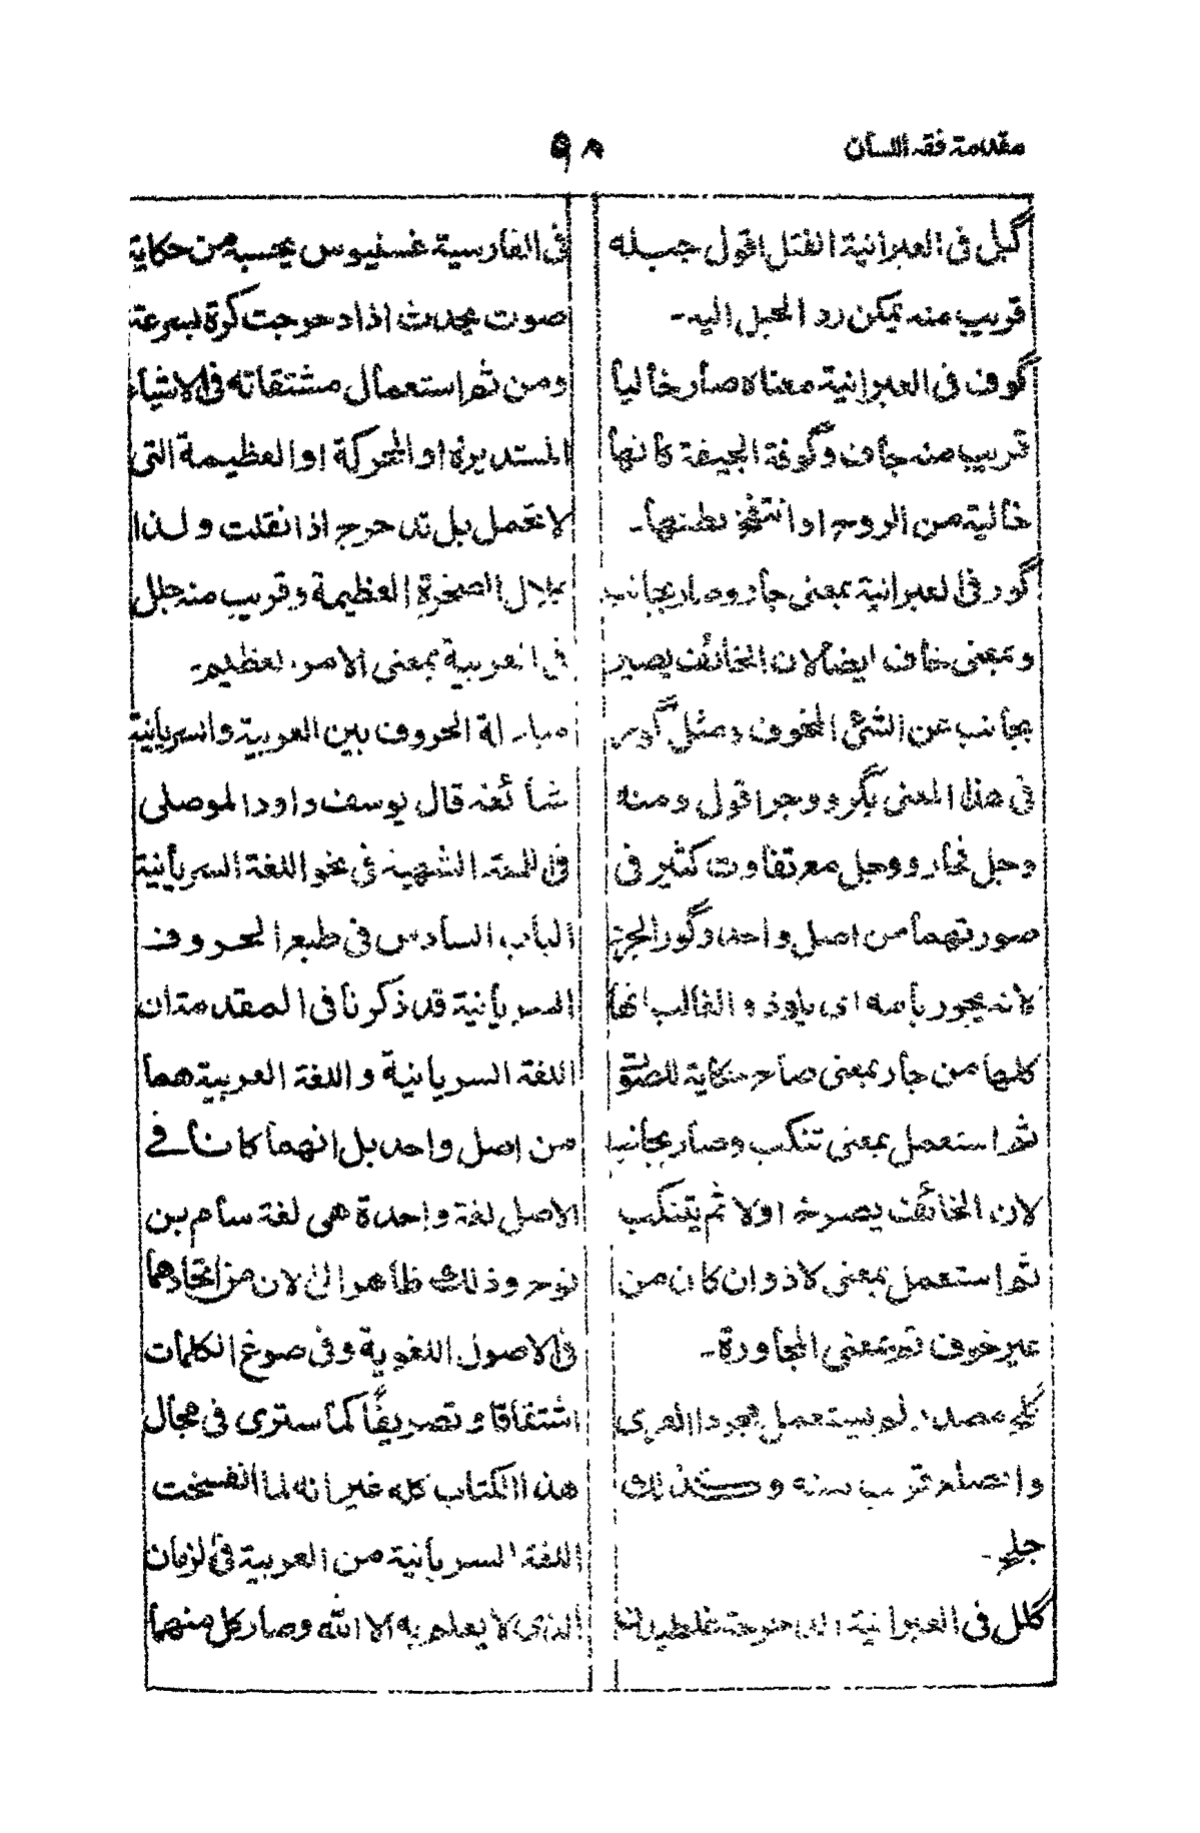 مقدمة فقه اللسان
٩٨
گبل فى العبرانية الفتل اقول جبله
قريب منه يمكن رد الحبل اليه۔
گوف فى العبرانية معناه صار خاليا
قريب منه جاف وگوفة الجيفة كانها
خالية من الروح او انتفخ بطنها۔
گور فى العبرانية بمعنى جار وصار بجانب
وبمعنى خاف ايضا لان الخائف يصير
بجانب عن الشئ المخوف ومثل گور
فى هذا المعنى يگر ووجر اقول ومنه
وجل فجار ووجل مع تفاوت كثير فى
صورتهما من اصل واحد وگور الجرو
لانه يجور بامه اى يلوذ و الغالب انها
كلها من جار بمعنى صاح حكاية للصوت
ثم استعمل بمعنى تنكب وصار بجانب
لان الخائف يصرخ اولا ثم يتنكب
ثم استعمل بمعنى لاذ وان كان من
غير خوف ثم بمعنى المجاورة۔
گلح لم يستعمل مجردا العربى
واصله قريب منه وكذلك
جلح۔
گلل فى العبرانية
فى الفارسية غسنيوس يحسبه من حكاية
صوت يحدث اذا دحرجت كرة بسرعة
ومن ثم استعمال مشتقاته فى الاشياء
المستديرة او المحركة او العظيمة التى
لا تحمل بل تدحرج اذا نقلت ولذا
بجلال الصخرة العظيمة وقريب منه جلل
فى العربية بمعنى الامر العظيم۔
مبادلة الحروف بين العربية والسريانية
شائعة قال يوسف داود الموصلى
فى اللمعة الشهية فى نحو اللغة السريانية
الباب السادس فى طبع الحروف
السريانية قد ذكرنا فى المقدمة ان
اللغة السريانية و اللغة العربية هما
من اصل واحد بل انهما كانتا فى
الاصل لغة واحدة هى لغة سام بن
نوح وذلك ظاهر الى الان من اتحادهما
فى الاصول اللغوية وفى صوغ الكلمات
اشتقاقا و تصريفًا كما سترى فى مجال
هذا الكتاب كله غير انه لما انفسخت
اللغة السريانية من العربية فى الزمان
الذى لا يعلم به الا الله وصار كل منهما